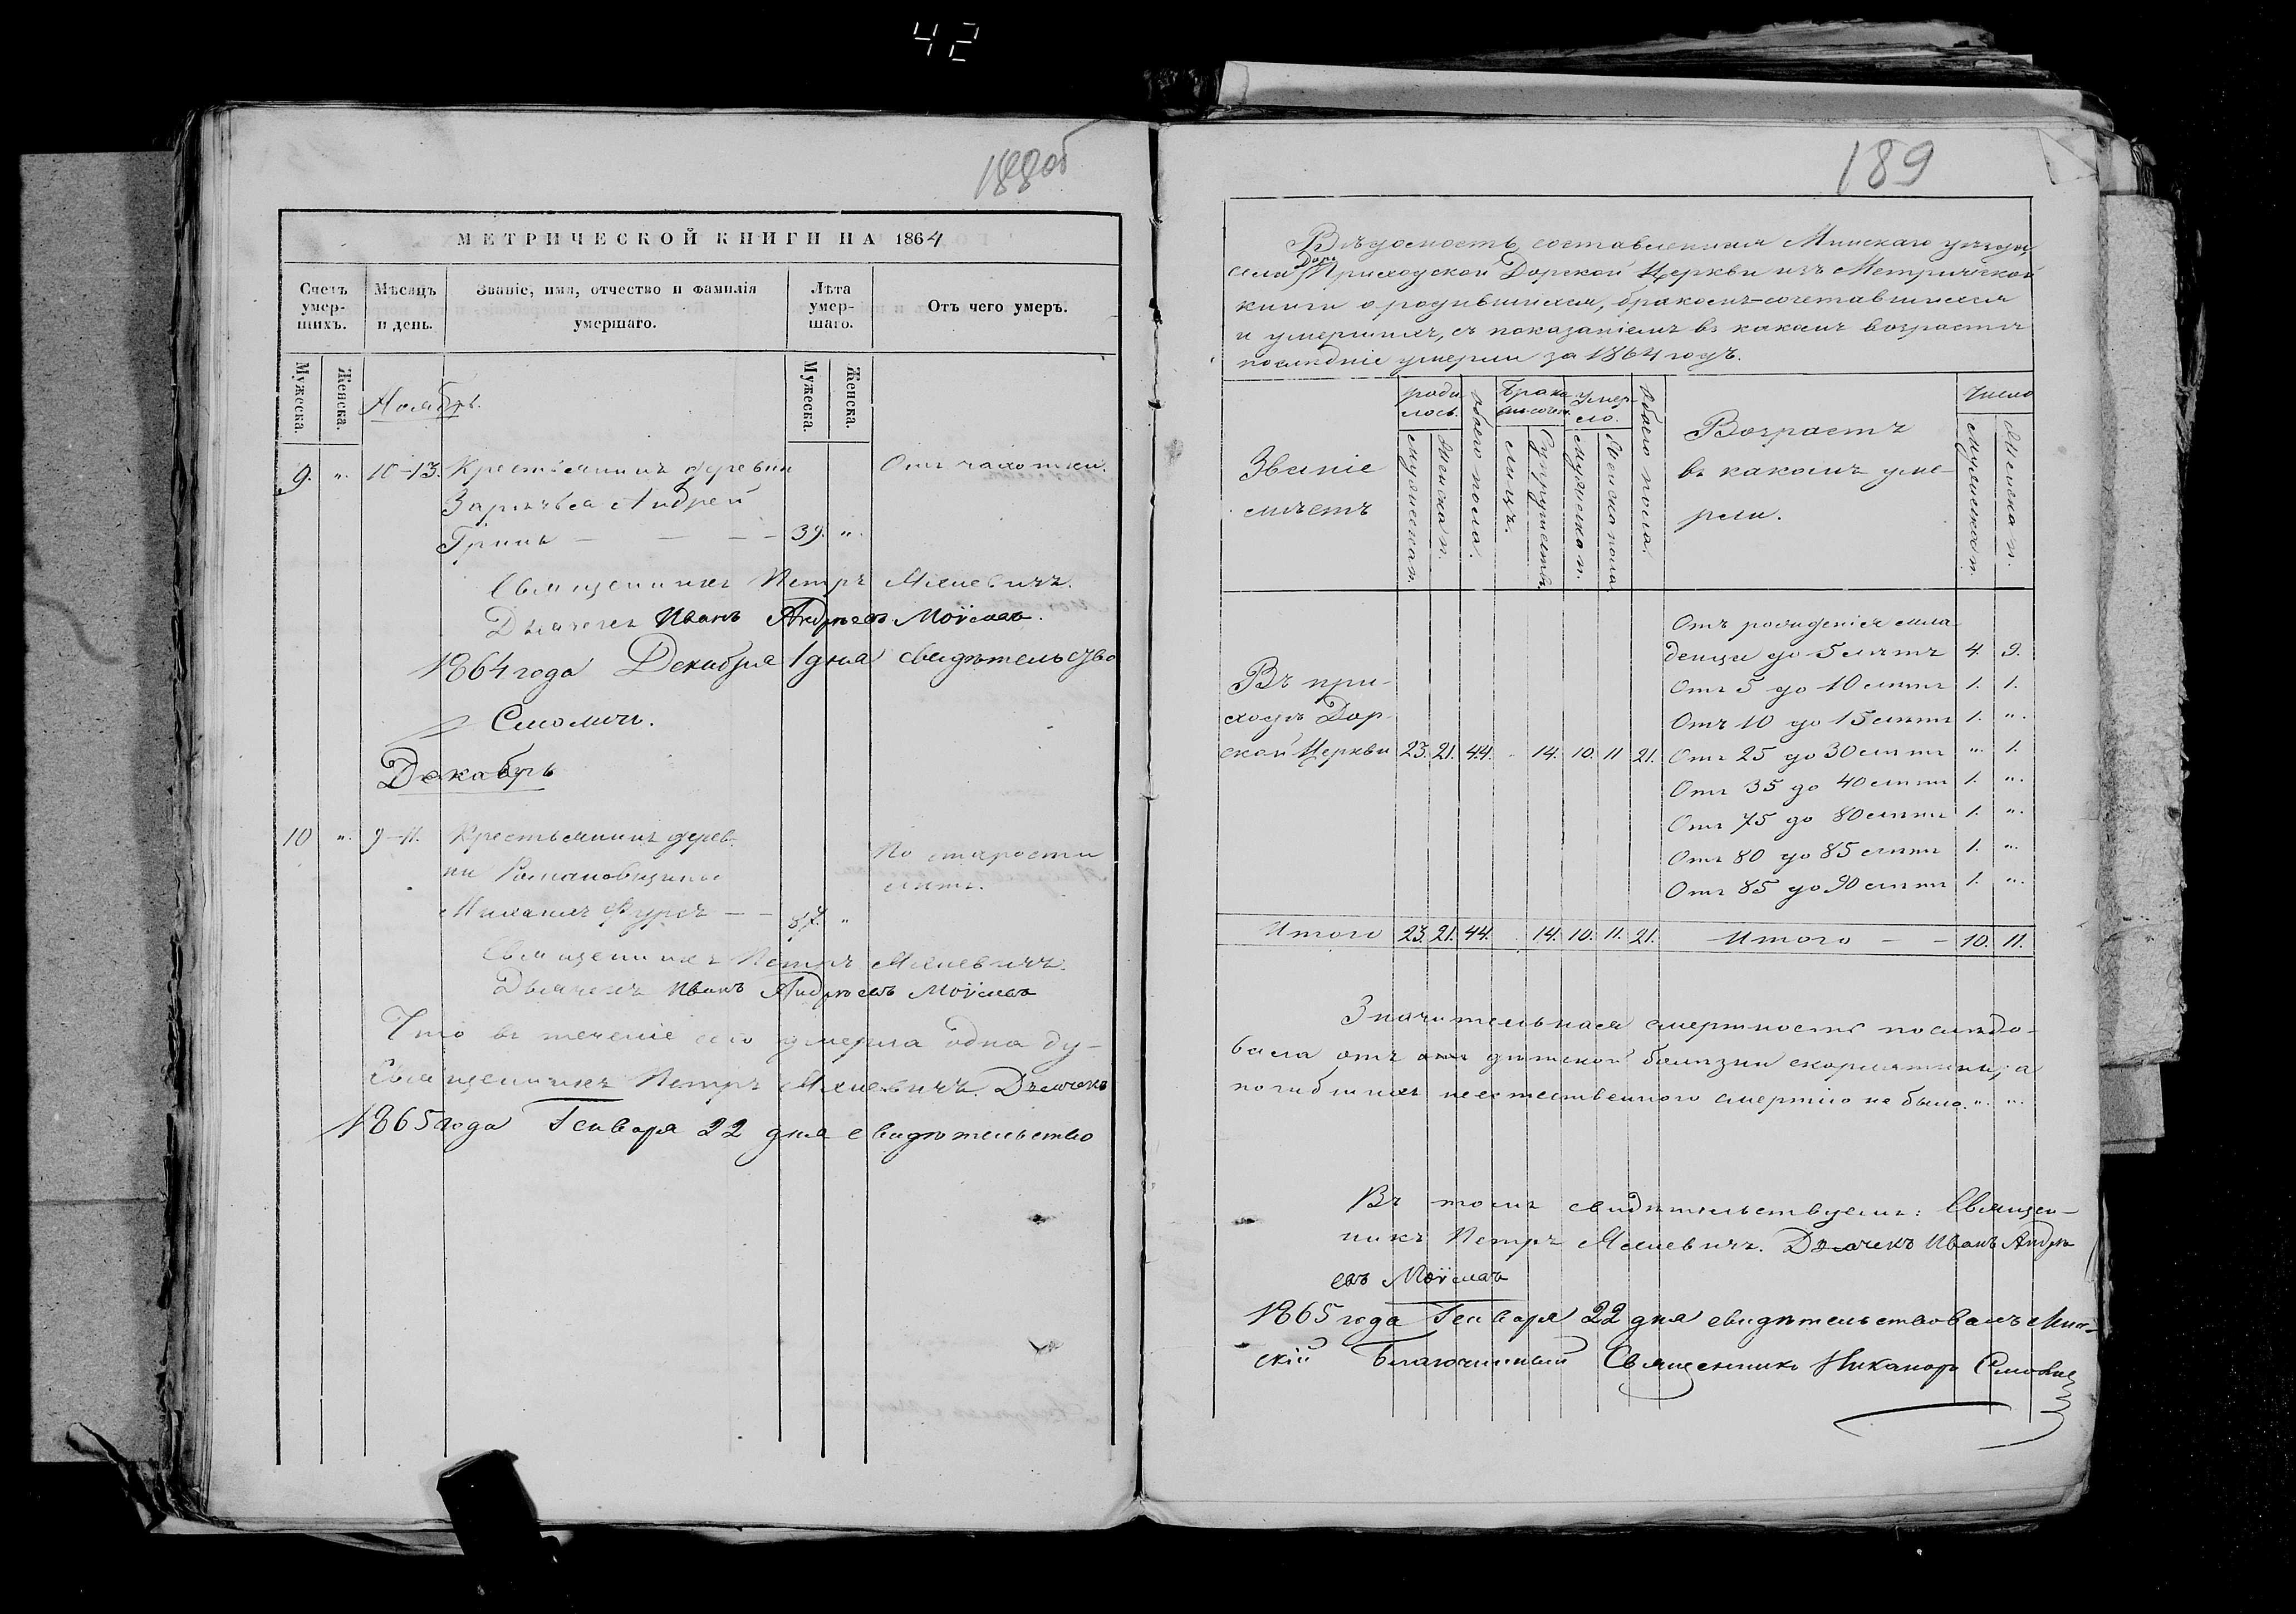 42
188об
МЕТРИЧЕСКОЙ КНИГИ НА 1864
Счетъ умер-шихъ.
Мѣсяцъ и день.
Званіе, имя, отчество и фамилія умершаго.
Лѣта умер-шаго.
Отъ чего умеръ.
Мужеска.
Женска.
Мужеска.
Женска.
Ноябрь.
9. „. 10-13. Крестьянинъ деревни Отъ чахотки.
Зарѣчья Андрей
Гринь — — — — 39. „.
Священникъ Петръ
Дьячекъ Иванъ Андреевъ
1864 года Декабря 1 дня свидѣтельство
Смоличъ.
Декабрь
10 „. 9-11. Крестьянинъ дерев-
ни Романовщины По старости
лѣтъ.
Михаилъ Фурсъ — — 87. „
Священникъ Петръ
Дьячекъ Иванъ Андреевъ
Что въ теченіе сего умерла одна ду-
Священникъ Петръ Дьячекъ
1865 года Генваря 22 дня свидѣтельство
189
Вѣдомость, составленная Минскаго уѣзда,
села Доръ Приходской Дорской Церкви изъ Метрической
книги о родившихся, бракомъ-сочетавшихся
и умершихъ, съ показаніемъ въ какомъ возрастѣ
послѣдніе умерли за 1864 годъ.
Званіе
мѣстъ
роди
лось.
мужеска п.
женска п.
обоего пола.
Брако
лицъ.
Супружествъ
Умер-
ло.
мужеска п.
женска пола
обоего пола.
Возрастъ
въ какомъ уме-
рли.
Число
мужеска п.
женска п.
Отъ рожденія мла
денцы до 5 лѣтъ 4. 9.
Отъ 5 до 10 лѣтъ 1. 1.
Отъ 10 до 15 лѣтъ 1. „.
Въ при-
ходѣ Дор-
ской Церкви 23. 21. 44. - 14. 10. 11 21. Отъ 25 до 30 лѣтъ „. 1.
Отъ 35 до 40 лѣтъ 1. „.
Отъ 75 до 80 лѣтъ 1. „.
Отъ 80 до 85 лѣтъ 1. „.
Отъ 85 до 90 лѣтъ 1. „.
Итого 23. 21. 44. . 14. 10. 11. 21. Итого — — 10. 11.
Значительная смертность послѣдо-
вала отъ дѣтской болѣзни скорлятины, а
погибшихъ неестественною смертію не было. „. „.
Въ томъ свидѣтельствуемъ: Священ-
никъ Петръ Дьячекъ Иванъ Андре
евъ
1865 года Генваря 22 дня свидѣтельствовалъ Мин-
скій Благочинный Священникъ Никаноръ Смоличъ